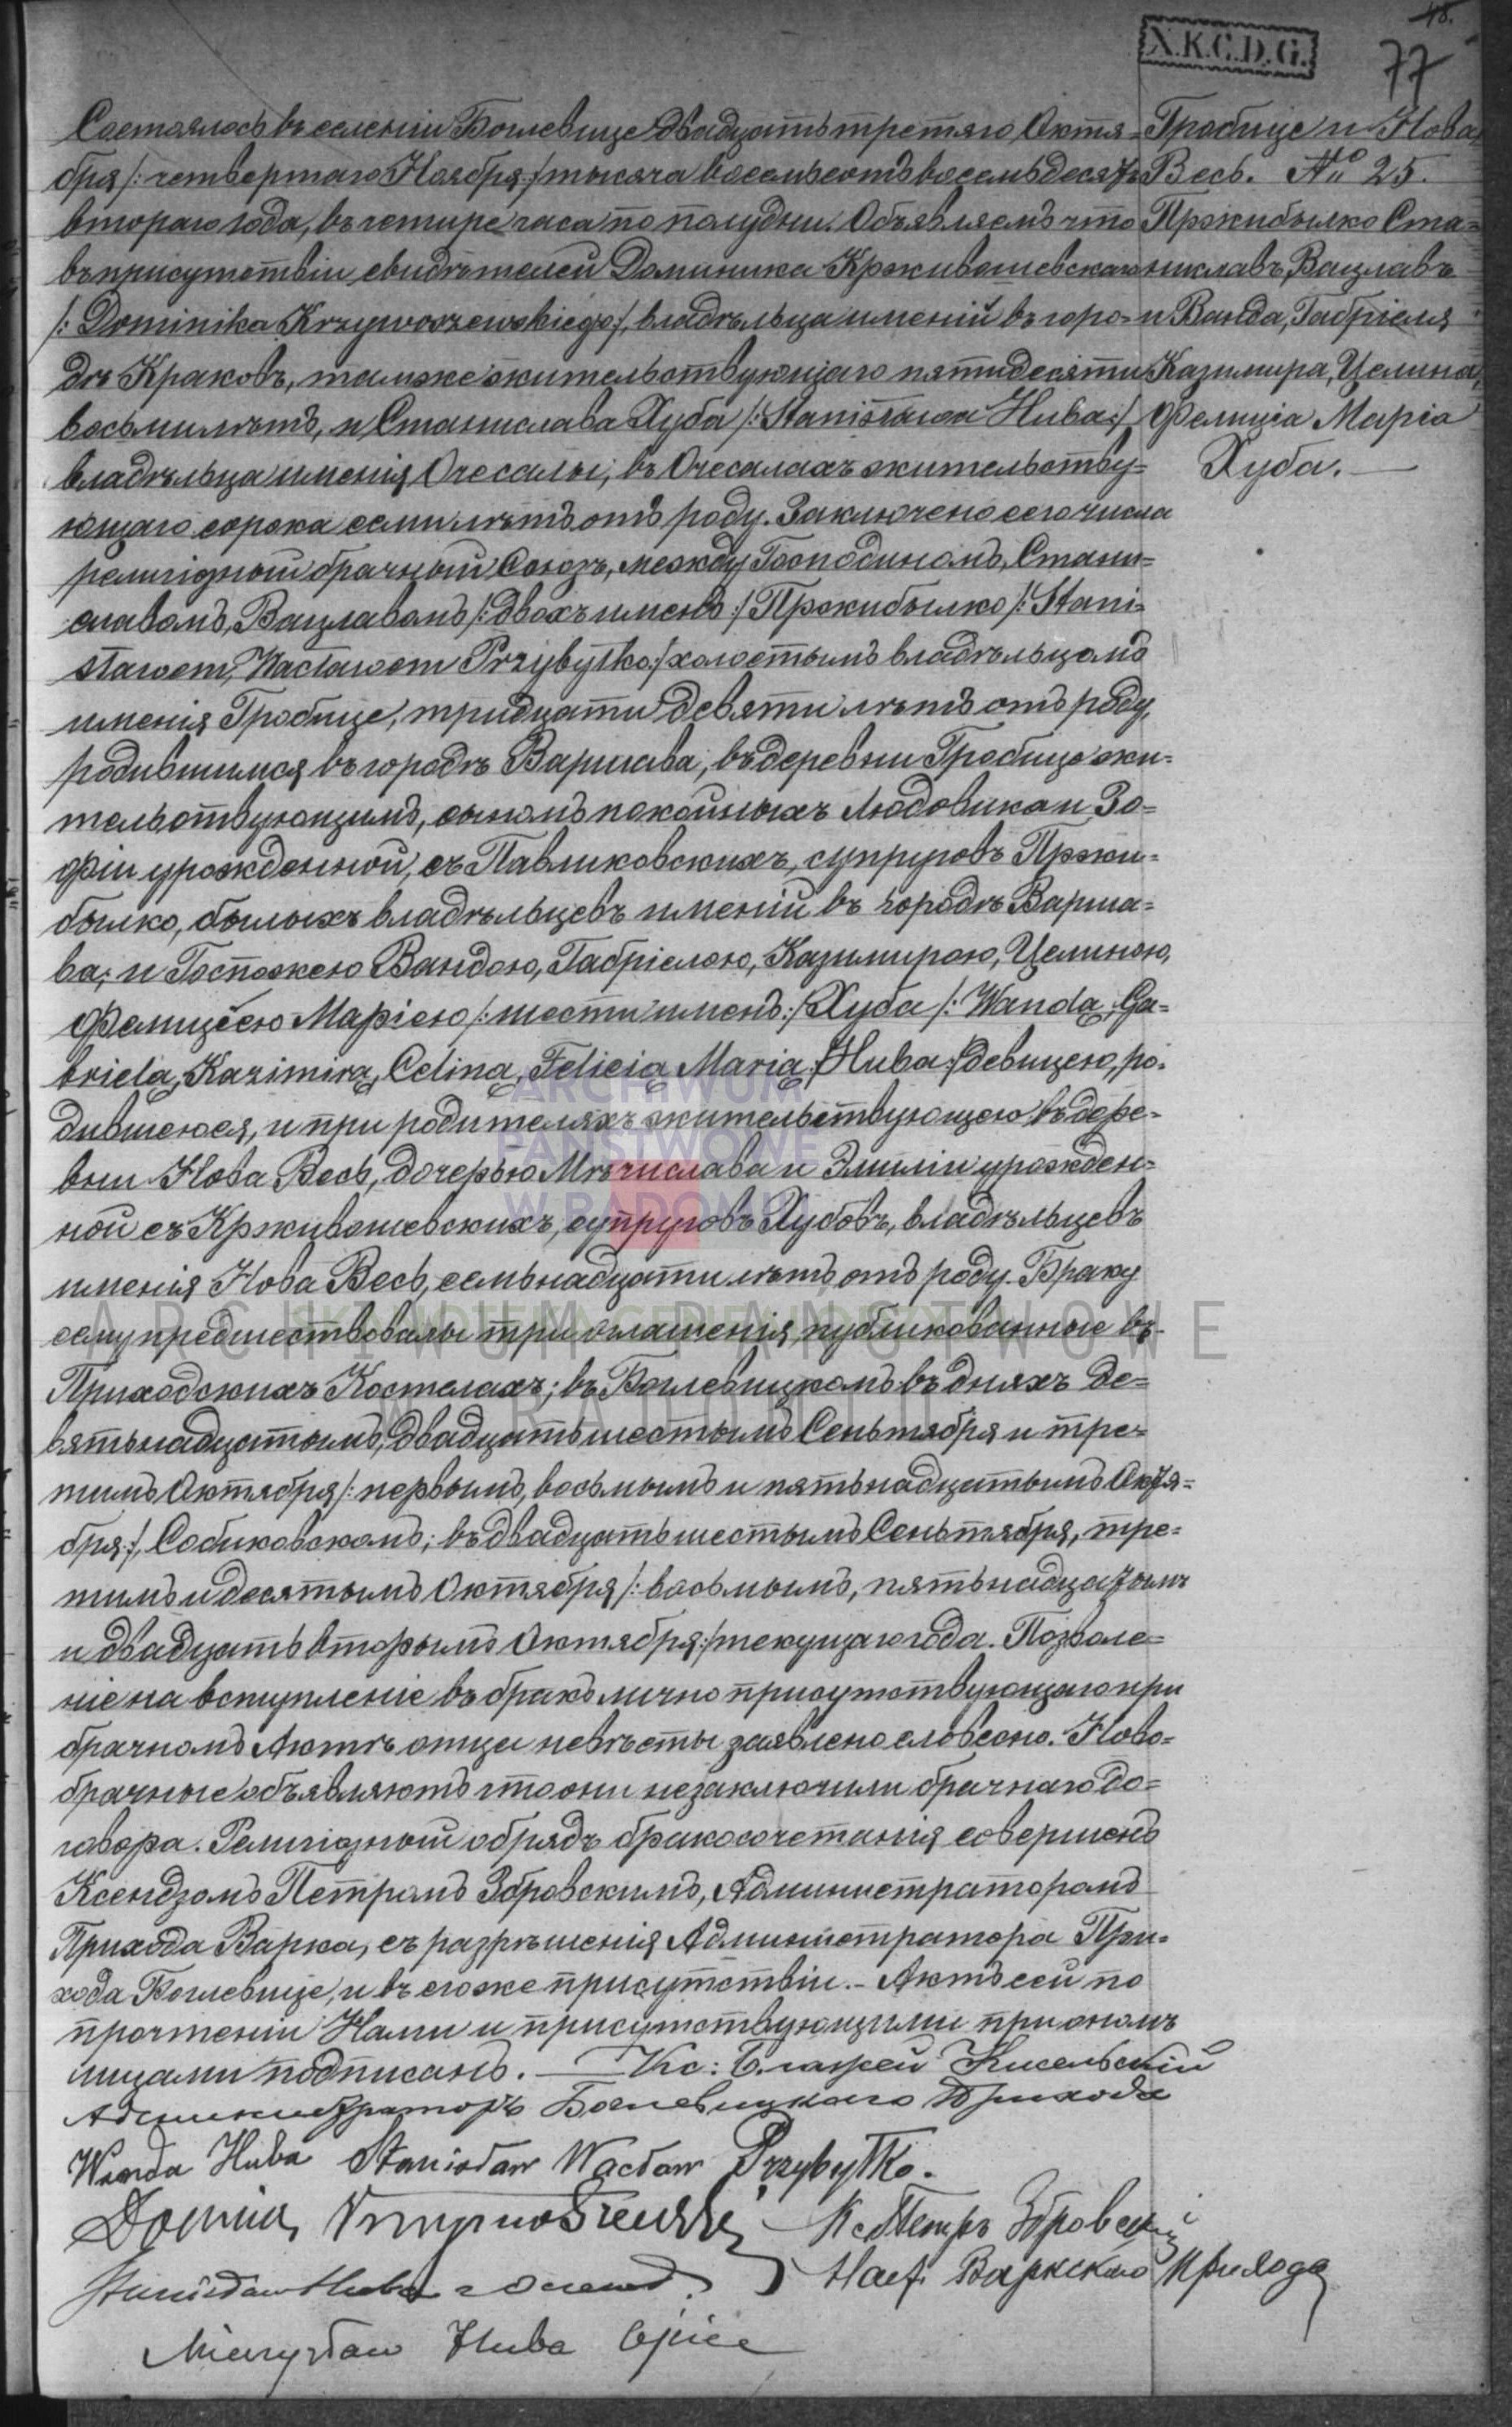 48.
X.K.C.D.G.
77
Гробице и Нова
Весь. № 25.
Пржибылко Ста=
ниславъ, Вацлавъ
и Ванда, Габріеля
Казимира, Целина,
Фелиціа Маріа
Хуба.—
Состоялось въ селеніи Боглевице двадцать третяго Октя=
бря /: четвертаго Ноября:/ тысяча восемьсотъ восемьдесятъ
втораго года, въ четыре часа по полудни. Объявляемъ что
въ присутствіи свидѣтелей Доминика Крживошевскаго
/: Dominika Krzywoszewskiego:/, владѣльца имений въ горо=
дѣ Краковѣ, тамже жительствующаго пятидесяти
восьми лѣтъ, и Станислава Хуба /: Stanisława Huba:/
владѣльца именія Очесалы, въ Очесалахъ жительству=
ющаго сорока семи лѣтъ отъ роду. Заключено сего числа
религіозный брачный Союзъ, между Господиномъ, Стани=
славомъ, Вацлавомъ /: двохъ именъ:/ Пржибылко /: Stani=
sławem, Wacławem Przybyłko:/ холостымъ владѣльцомъ
именія Гробице, тридцати девяти лѣтъ отъ роду,
родившимся въ городѣ Варшава, въ деревни Гробице жи=
тельствующимъ, сыномъ покойныхъ Людовика и Зо=
фіи урожденной, съ Павликовскихъ, супруговъ Пржи=
былко, былыхъ владѣльцевъ имений въ городѣ Варша=
ва; и Госпожею Вандою, Габріелою, Казимирою, Целиною,
Фелицеею Маріею /: шести именъ:/ Хуба /: Wandą, Ga=
brielą, Kazimirą, Celiną, Felicią Marią Huba:/ девицею, ро=
дившеюся, и при родителяхъ жительствующею въ дере=
вни Нова Весь, дочерью Мѣчислава и Эмиліи урожден=
ной съ Крживошевскихъ, супруговъ Хубовъ, владѣльцевъ
именія Нова Весь, семьнадцати лѣтъ отъ роду. Браку
сему предшествовалы три оглашенія, публикованные въ
Приходскихъ Костелахъ; въ Боглевицкомъ въ дняхъ де=
вятьнадцатымъ, двадцать шестымъ Сеньтября и тре=
тимъ Октября /: первымъ, восьмымъ и пятьнадцатымъ Октя=
бря:/, Собиковскомъ; въ двадцать шестымъ Сеньтября, тре=
тимъ и десятымъ Октября /: восьмымъ, пятьнадцатымъ
и двадцать вторымъ Октября:/ текущаго года. Позволе=
ніе на вступленіе въ бракъ лично присутствующаго при
брачномъ Актѣ отца невѣсты заявлено словесно. Ново=
брачные объявляютъ что они незаключили брачнаго до=
говора. Религіозный обрядъ бракосочетанія совершенъ
Ксендзомъ Петромъ Збровскимъ, Администраторомъ
Прихода Варка, съ разрѣшенія Администратора При=
хода Боглевице, и въ его же присутствіи.- Актъ сей по
прочтеніи Нами и присутствующими при ономъ
лицами подписанъ. — Кс: Блажей Кисельскій
Администраторъ Боглевицкаго Прихода
Wanda Huba Stanisław Wacław Przybyłko.
Domin Krzywoszewski Кс Петръ Збровскій
Stanisław Huba z Наст. Варкскаго Прихода
Mieczysław Huba Ojciec
ARCHIWUM
PAŃSTWOWE
W RADOMIU
ARCHIWUM PAŃSTWOWE
W RADOMIU